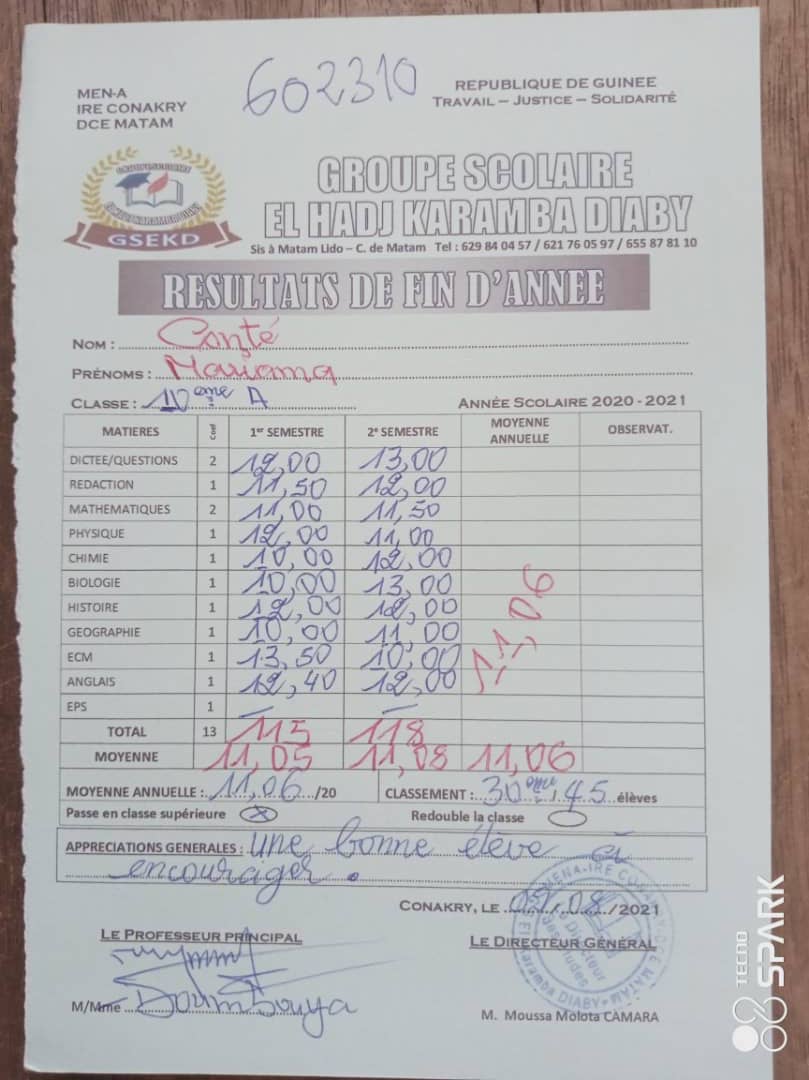 602310
MEN-A
IRE CONAKRY
DCE MATAM
REPUBLIQUE DE GUINEE
TRAVAIL – JUSTICE – SOLIDARITÉ
GROUPE SCOLAIRE
EL HADJ KARAMBA DIABY
GSEKD
Sis à Matam Lido – C. de Matam Tel : 629 84 04 57 / 621 76 05 97 / 655 87 81 10
RESULTATS DE FIN D'ANNEE
NOM : Conté
PRÉNOMS : Mariama
CLASSE : 10ème A ANNÉE SCOLAIRE 2020 - 2021
MATIERES Coef 1er SEMESTRE 2e SEMESTRE MOYENNE ANNUELLE OBSERVAT.
DICTEE/QUESTIONS 2 12,00 13,00
REDACTION 1 11,50 12,00
MATHEMATIQUES 2 11,00 11,50
PHYSIQUE 1 12,00 11,00
CHIMIE 1 10,00 12,00
BIOLOGIE 1 10,00 13,00
HISTOIRE 1 12,00 12,00
GEOGRAPHIE 1 10,00 11,00
ECM 1 13,50 10,00
ANGLAIS 1 12,40 12,00
11,06
EPS 1 – –
TOTAL 13 115 118
MOYENNE 11,05 11,08 11,06
MOYENNE ANNUELLE : 11,06 /20 CLASSEMENT : 30ème / 45 élèves
Passe en classe supérieure X Redouble la classe
APPRECIATIONS GENERALES : une bonne élève à
encourager.
CONAKRY, LE /08/2021
LE PROFESSEUR PRINCIPAL LE DIRECTEUR GÉNÉRAL
MENA-IRE CONAKRY-DCE MATAM
Directeur
des Etudes
El Karamba DIABY
M/Mme Doumbouya
M. Moussa Molota CAMARA
TECNO
SPARK